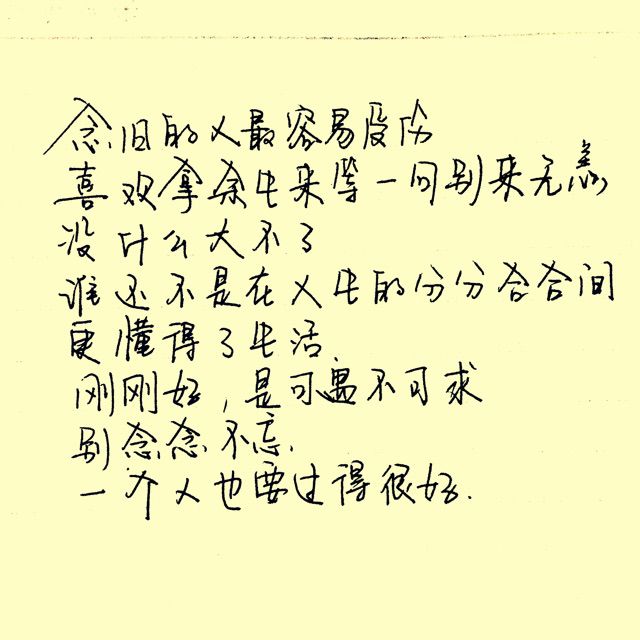 念旧的人最容易受伤
喜欢拿余生来等一句别来无恙
没什么大不了
谁还不是在人生的分分合合间
更懂得了生活
刚刚好,是可遇不可求
别念念不忘.
一个人也要过得很好.